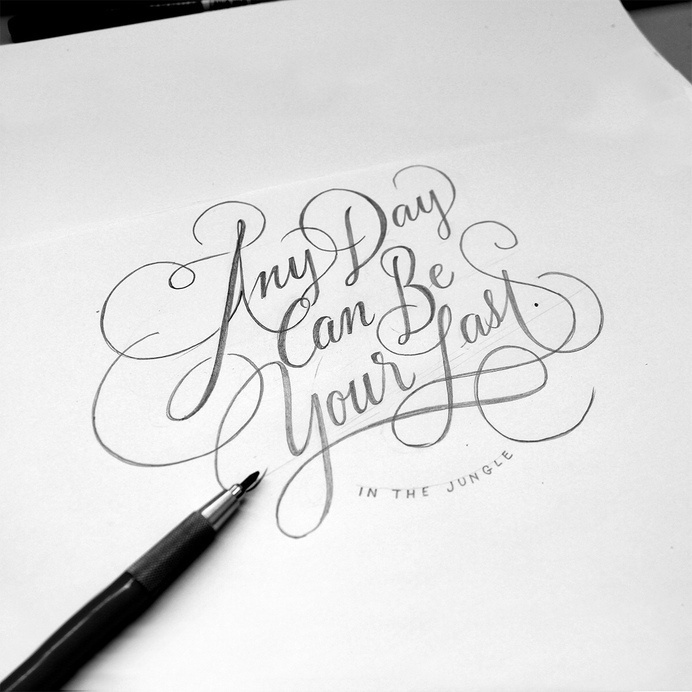 Any Day
Can Be
Your Last.
IN THE JUNGLE